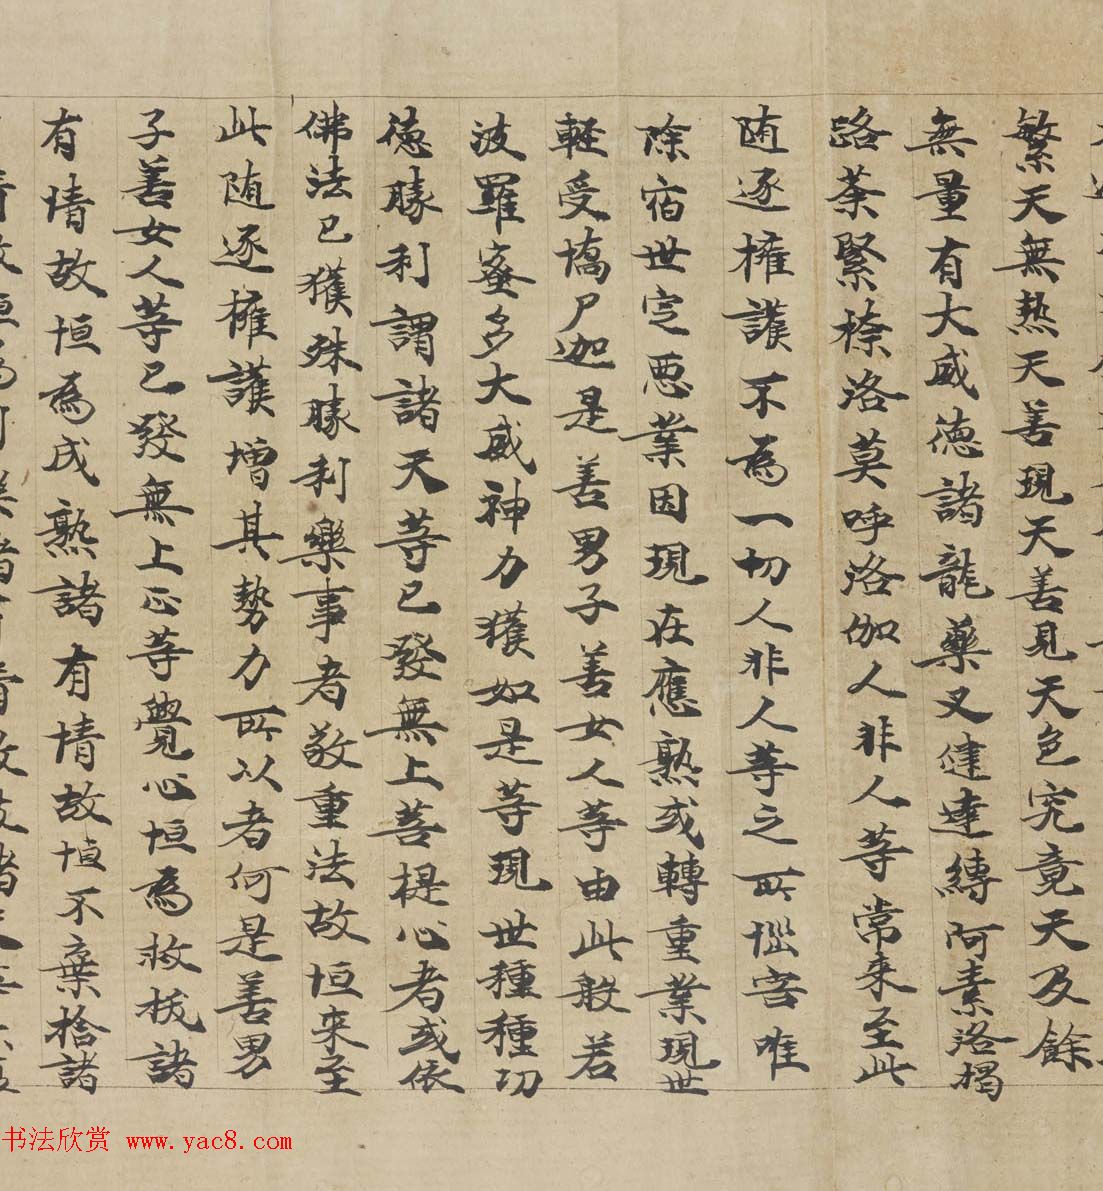 繁天無熱天善現天善見天色究竟天及餘
無量有大威德諸龍藥叉健達縛阿素洛揭
路荼緊捺洛莫呼洛伽人非人等常来至此
随逐擁護不為一切人非人等之所惱害唯
除宿世定悪業因現在應熟或轉重業現世
軽受憍尸迦是善男子善女人等由此般若
波羅蜜多大威神力獲如是等現世種種功
徳勝利謂諸天等已發無上菩提心者或依
佛法已獲殊勝利樂事者敬重法故恒来至
此随逐擁護增其勢力所以者何是善男
子善女人等已發無上正等覺心恒為救拔諸
有情故恒為成熟諸有情故恒不棄捨諸
书法欣赏 www.yac8.com